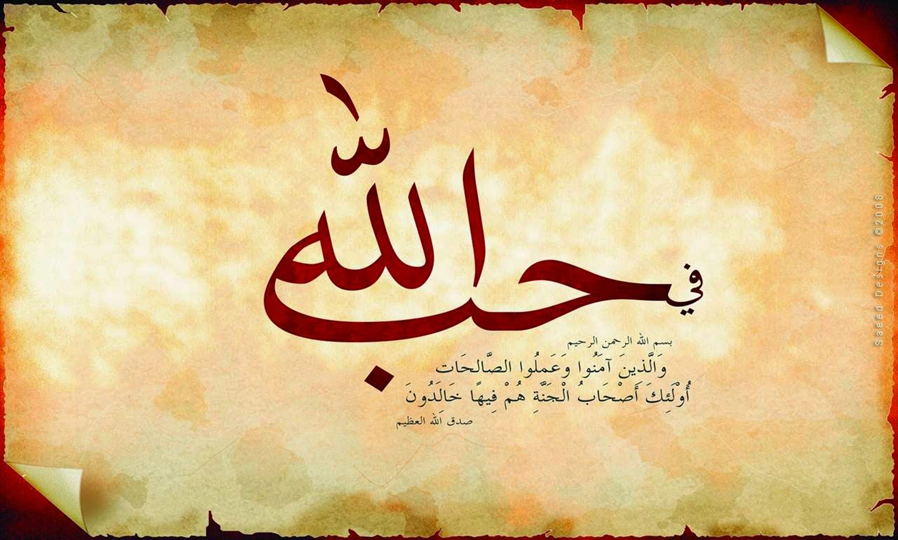 في حب الله
بسم الله الرحمن الرحيم
وَالَّذِينَ آمَنُوا وَعَمِلُوا الصَّالِحَاتِ
أُوْلَئِكَ أَصْحَابُ الْجَنَّةِ هُمْ فِيهَا خَالِدُونَ
صدق الله العظيم
Saeed Designs ©2008